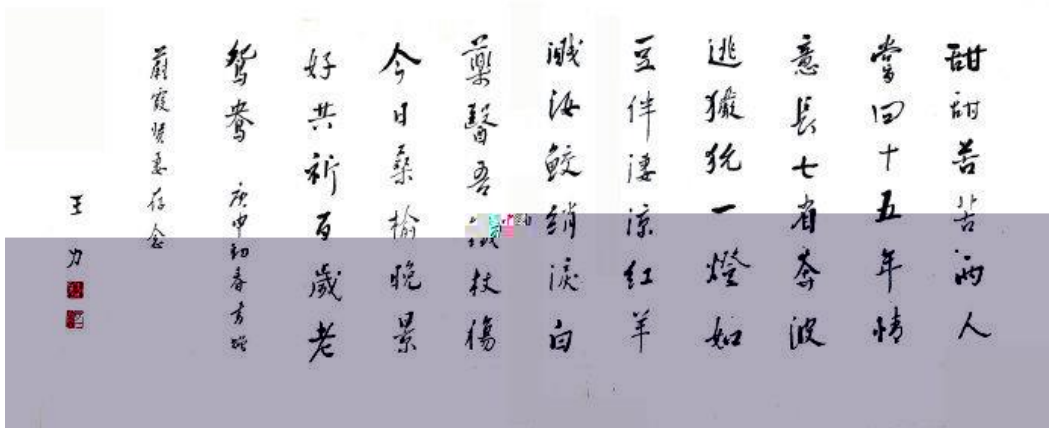 甜甜苦苦兩人
嘗四十五年情
意長七省奔波
逃玁狁一燈如
豆伴淒涼紅羊
濺汝鮫綃淚白
藥醫吾杖傷
今日桑榆晚景
好共祈百歲老
鴛鴦 庚申初春書贈
蔚霞賢妻存念
王力